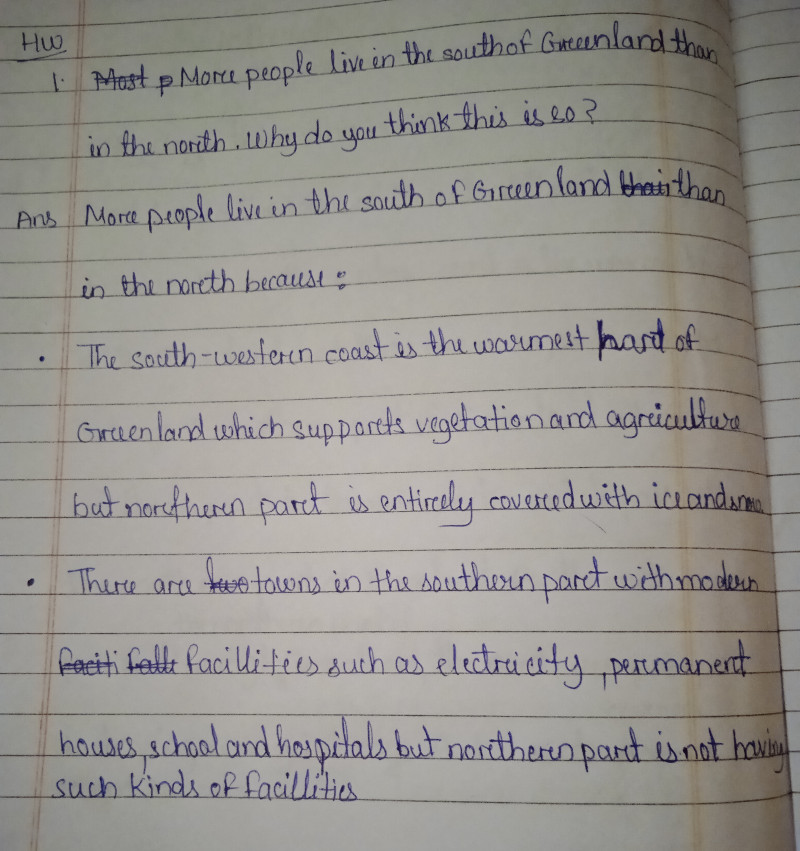 HW
1. Most p More people live in the south of Greenland than
in the north. Why do you think this is so?
Ans More people live in the south of Greenland thair than
in the north because:
• The south-western coast is the warmest part of
Greenland which supports vegetation and agriculture
but northern part is entirely covered with ice and snow
• There are two towns in the southern part with modern
faciti falli facillities such as electricity, permanent
houses, school and hospitals but northern part is not having
such kinds of facillities